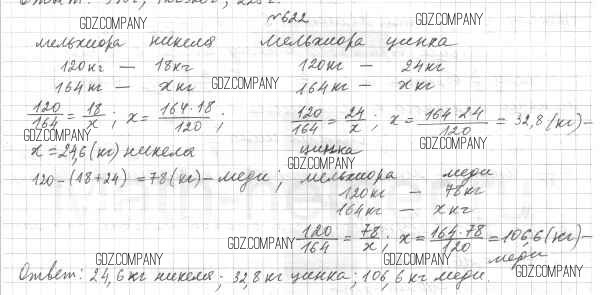 №622
GDZ.COMPANY GDZ.COMPANY
мельхиора никеля мельхиора цинка
120 кг — 18 кг 120 кг — 24 кг
164 кг — x кг GDZ.COMPANY 164 кг — x кг
120/164 = 18/x; x = 164·18/120; 120/164 = 24/x; x = 164·24/120 = 32,8 (кг) –
GDZ.COMPANY GDZ.COMPANY
x = 24,6 (кг) никеля цинка
GDZ.COMPANY
120 – (18+24) = 78 (кг) – меди; мельхиора меди
120 кг — 78 кг
164 кг — x кг
GDZ.COMPANY 120/164 = 78/x; x = 164·78/120 = 106,6 (кг) –
GDZ.COMPANY меди
Ответ: 24,6 кг никеля; 32,8 кг цинка; 106,6 кг меди.
GDZ.COMPANY GDZ.COMPANY